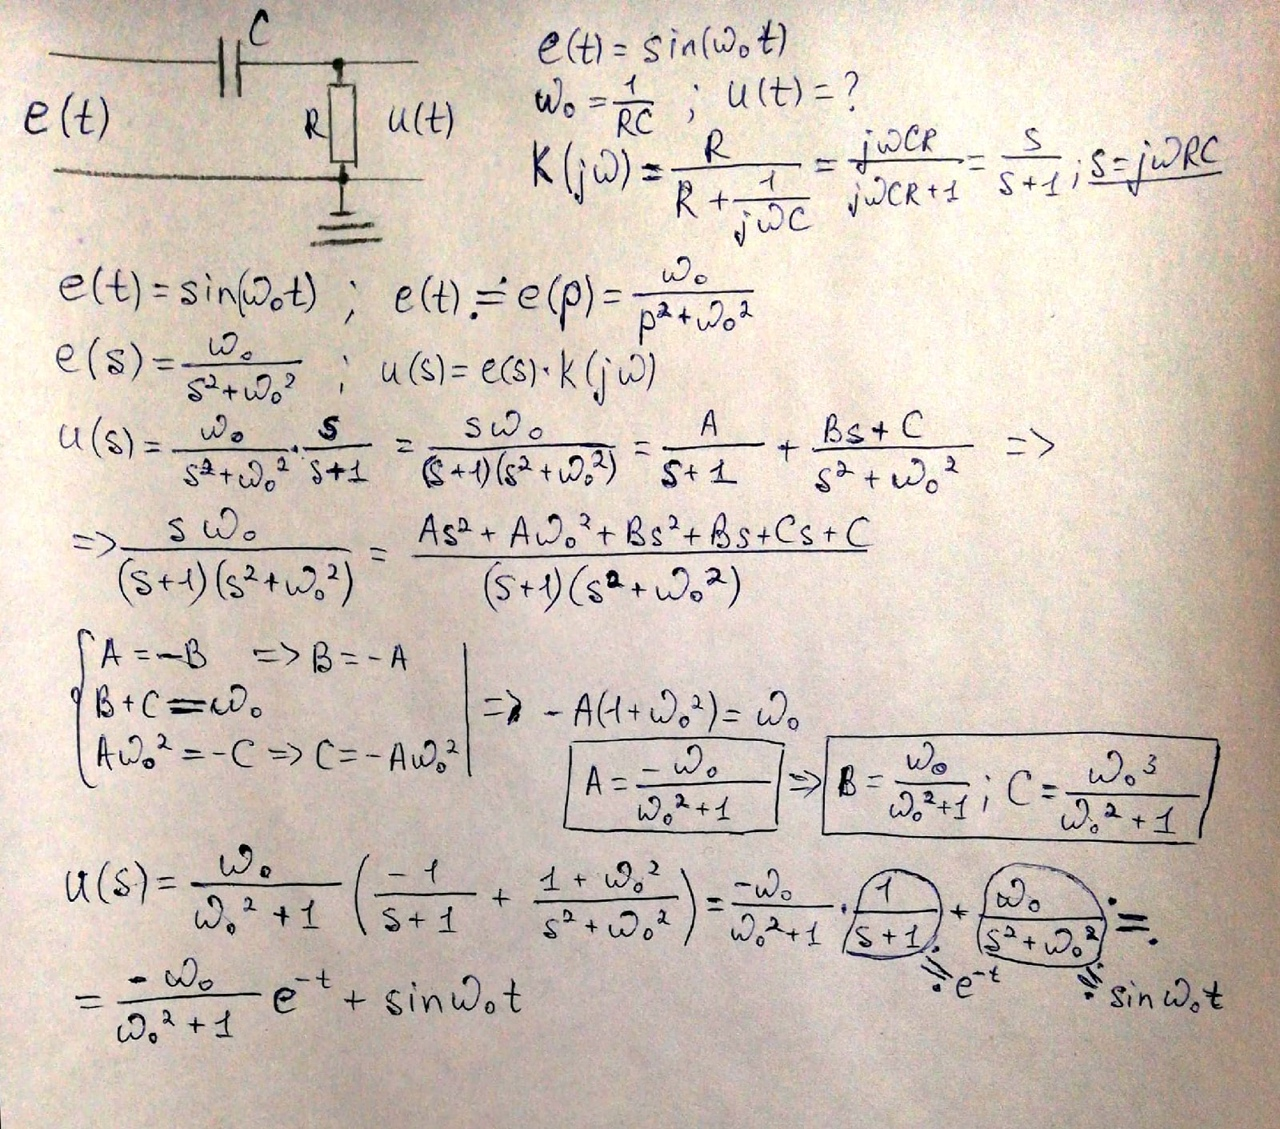 C
e(t)
R
u(t)
e(t) = sin(ω₀t)
ω₀ = 1/RC ; u(t) = ?
K(jω) = R/(R + 1/(jωC)) = jωCR/(jωCR+1) = s/(s+1) ; s = jωRC
e(t) = sin(ω₀t) ; e(t) ≓ e(p) = ω₀/(p² + ω₀²)
e(s) = ω₀/(s² + ω₀²) ; u(s) = e(s)·K(jω)
u(s) = ω₀/(s² + ω₀²) · s/(s+1) = sω₀/((s+1)(s² + ω₀²)) = A/(s+1) + (Bs + C)/(s² + ω₀²) =>
=> sω₀/((s+1)(s² + ω₀²)) = (As² + Aω₀² + Bs² + Bs + Cs + C)/((s+1)(s² + ω₀²))
{ A = -B => B = -A
B + C = ω₀
Aω₀² = -C => C = -Aω₀² | => -A(1+ω₀²) = ω₀
A = -ω₀/(ω₀² + 1) => B = ω₀/(ω₀² + 1) ; C = ω₀³/(ω₀² + 1)
u(s) = ω₀/(ω₀² + 1) (-1/(s+1) + (1 + ω₀²)/(s² + ω₀²)) = -ω₀/(ω₀² + 1) · 1/(s+1) + ω₀/(s² + ω₀²) ≓
≓ e⁻ᵗ
≓ sin ω₀t
= -ω₀/(ω₀² + 1) e⁻ᵗ + sin ω₀t